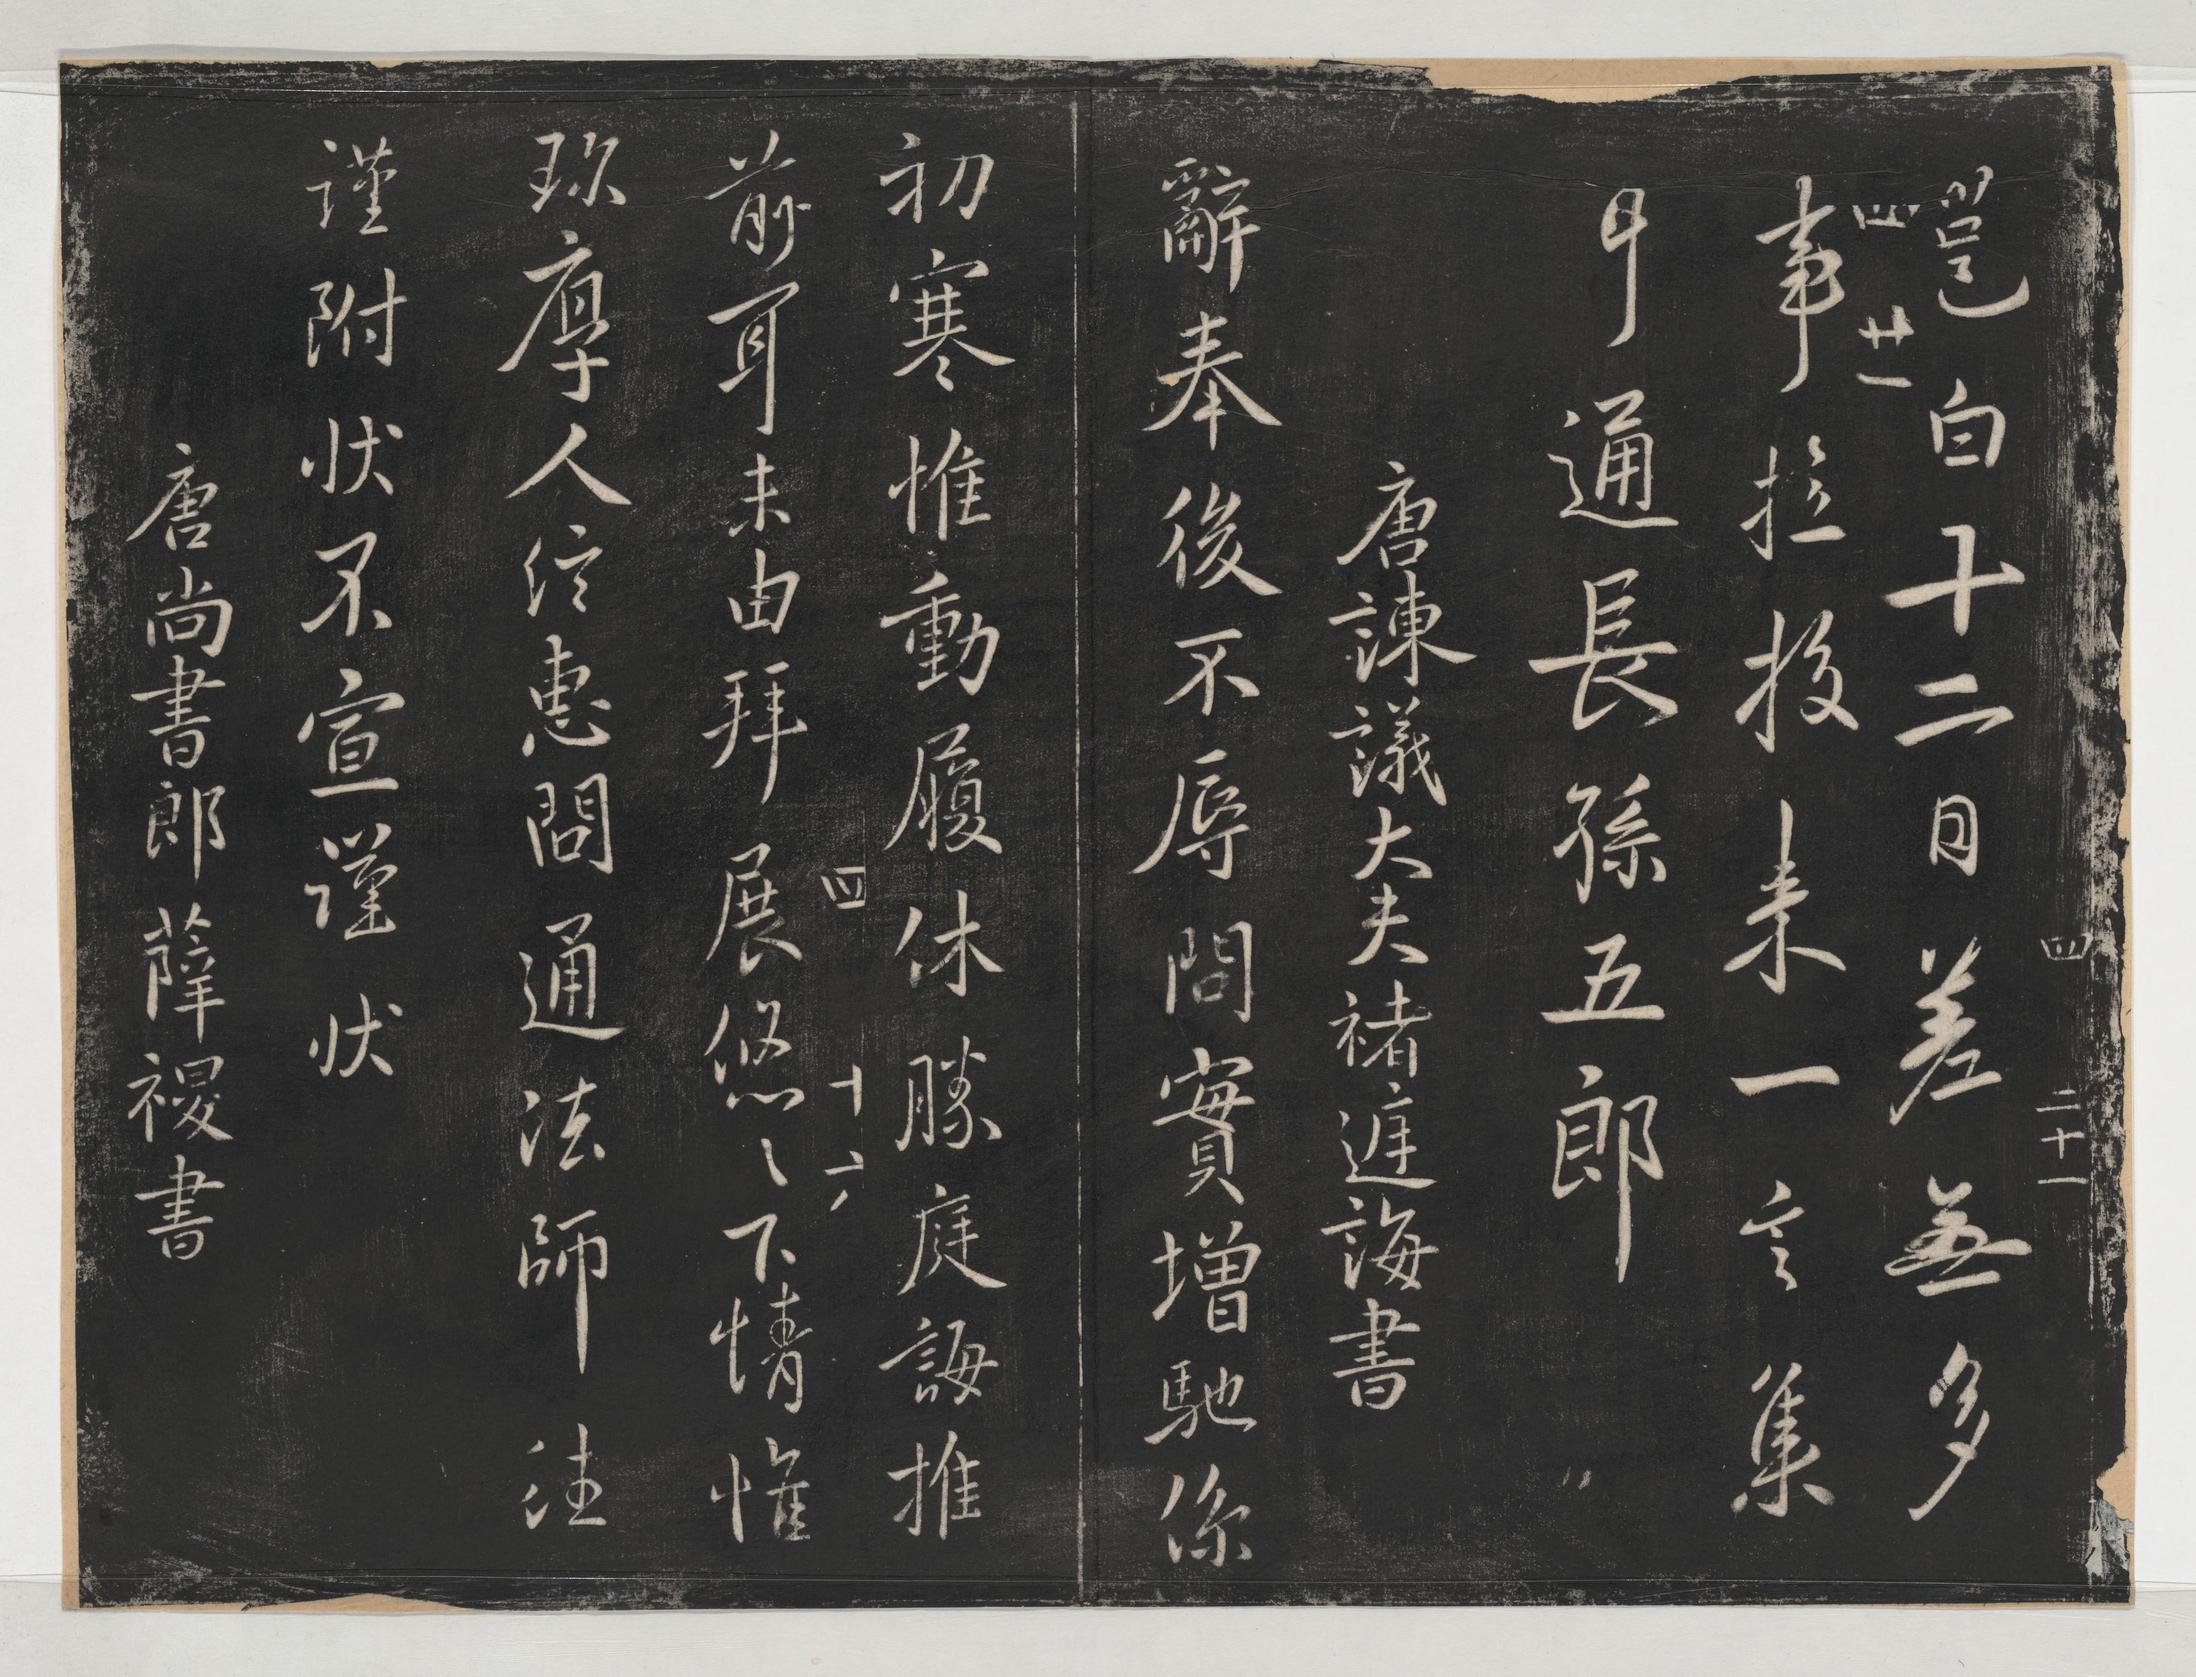 四 二十一
邕白十二日差無多
四 廿一
事拉投来一言集
日通長孫五郎
唐諫議大夫褚庭誨書
辭奉後不辱問實增馳係
初寒惟動履休勝庭誨推
四 十六
前耳未由拜展悠〻下情惟
珎厚人信惠問通法師往
謹附狀不宣謹狀
唐尚書郎薛稷書